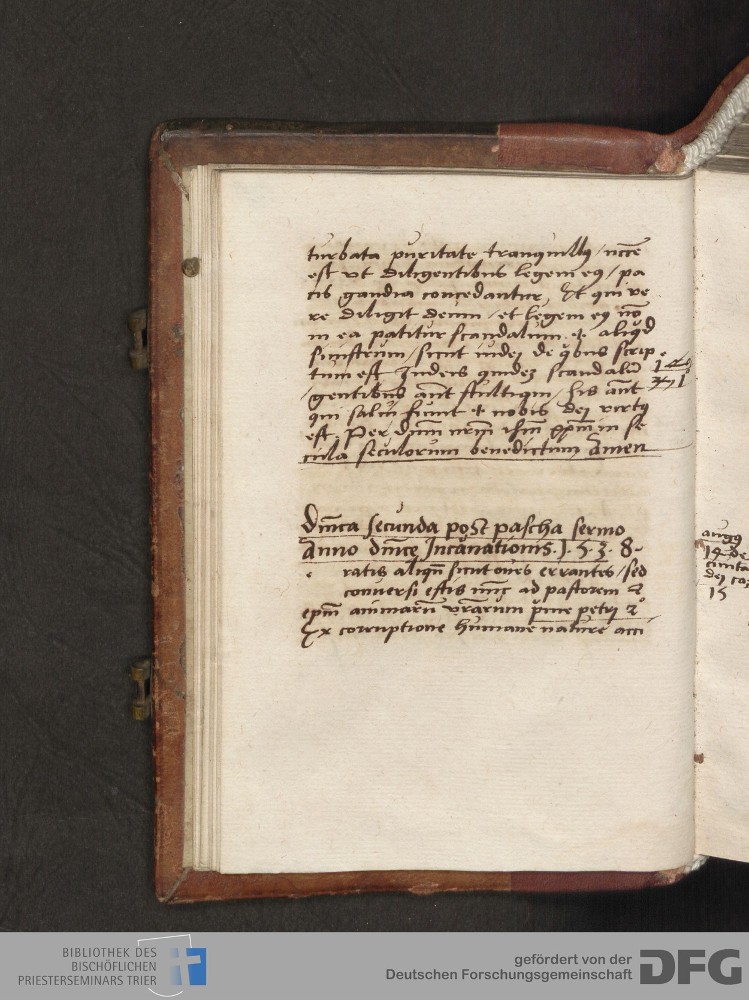 turbata puritate tranquillꝯ / nc̄ce
est vt diligentibus legem eꝯ / pa
cis gaudia concedantur, Et qui ve
re diligit deum / et legem eꝯ nō
in ea patitur scandalum ⁊ aliqd
sinistrum / sicut iudei de qͥbus scrip
tum est Iudeis quidez scandalū
gentibus aūt stultiam / his aūt
qui salui fiunt ⁊ nobis dei virtꝯ
est, Per dn̄m nrm̄ ihm̄ xpm̄ in se
cula seculorum benedictum Amen
1 Co
Dn̄ica secunda post pascha sermo
Anno dn̄ice Incarnationis. 1. 5. 3. 8.
ratis aliqn̄ sicut oues errantes / sed
conuersi estis nūc ad pastorem ⁊
epm̄ animarū vr̄arum prime petri 2º
Ex corruptione humane nature acci
augꝯ
14 de
ciuita
dei ca
15
BIBLIOTHEK DES
BISCHÖFLICHEN
PRIESTERSEMINARS TRIER
gefördert von der
Deutschen Forschungsgemeinschaft
DFG